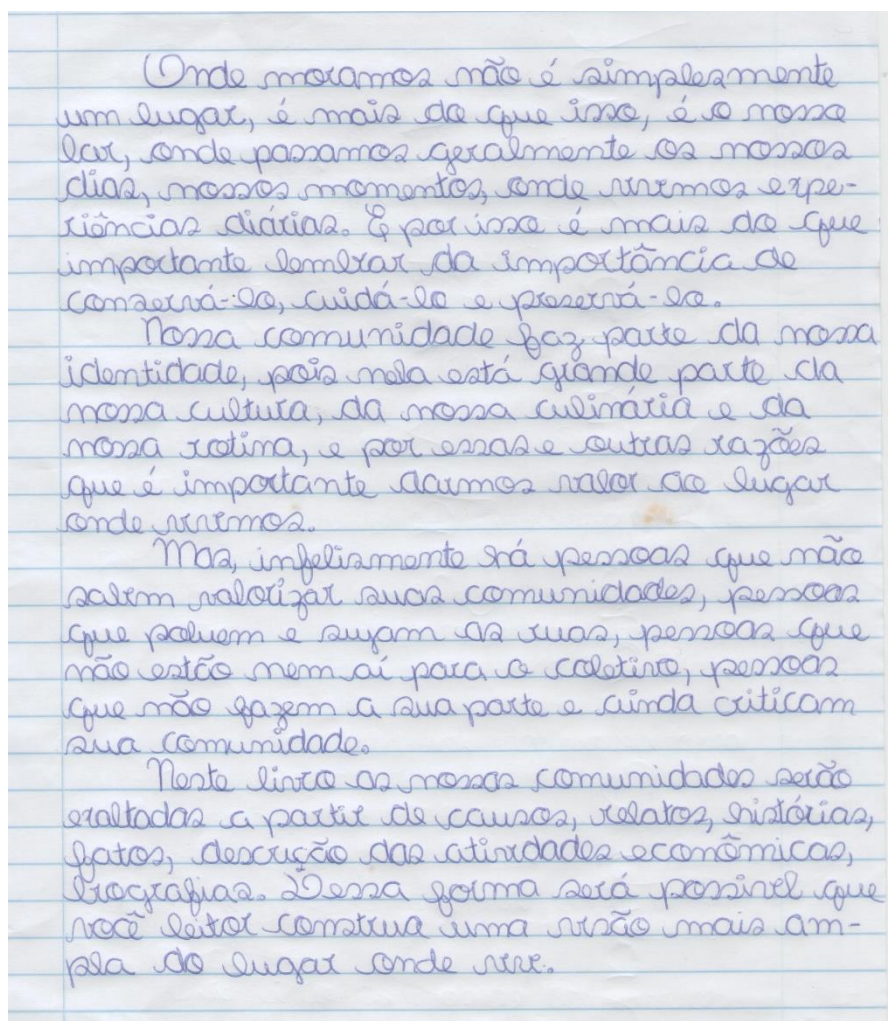 Onde moramos não é simplesmente
um lugar, é mais do que isso, é o nosso
lar, onde passamos geralmente os nossos
dias, nossos momentos, onde vivemos expe-
riências diárias. E por isso é mais do que
importante lembrar da importância de
conservá-lo, cuidá-lo e preservá-lo.
Nossa comunidade faz parte da nossa
identidade, pois nela está grande parte da
nossa cultura, da nossa culinária e da
nossa rotina, e por essas e outras razões
que é importante darmos valor ao lugar
onde vivemos.
Mas, infelismente há pessoas que não
sabem valorizar suas comunidades, pessoas
que poluem e sujam as ruas, pessoas que
não estão nem aí para o coletivo, pessoas
que não fazem a sua parte e ainda criticam
sua comunidade.
Neste livro as nossas comunidades serão
exaltadas a partir de causos, relatos, histórias,
fatos, descrição das atividades econômicas,
biografias. Dessa forma será possível que
você leitor construa uma visão mais am-
pla do lugar onde vive.